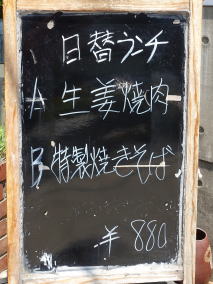 日替ランチ
A 生姜焼肉
B 特製焼きそば
¥880